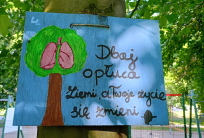 Dbaj
o płuca
Ziemi, a Twoje życie
się zmieni.